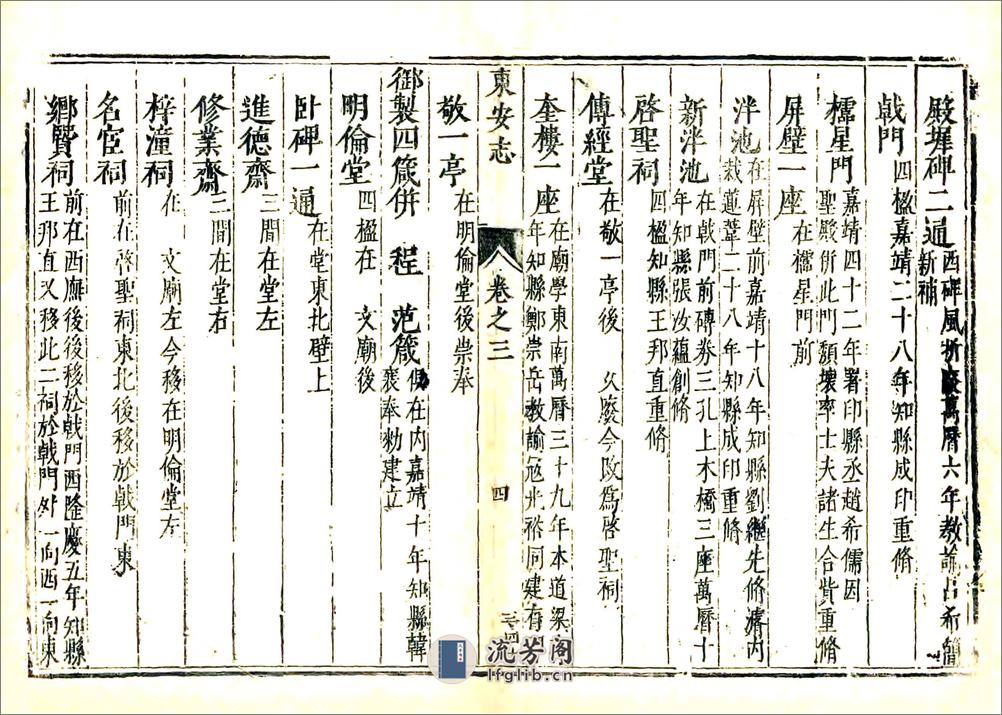 殿墀碑二通 西碑風折廢萬曆六年教諭呂希簡新補
戟門 四楹嘉靖二十八年知縣成印重脩
櫺星門 嘉靖四十二年署印縣丞趙希儒因聖殿併此門頹壞率士夫諸生合貲重脩
屏壁一座 在櫺星門前
泮池 在屏壁前嘉靖十八年知縣劉繼先脩濬內栽蓮葦二十八年知縣成印重脩
新泮池 在戟門前磚券三孔上木橋三座萬曆十年知縣張汝蘊創脩
啓聖祠 四楹知縣王邦直重脩
傳經堂 在敬一亭後 久廢今改爲啓聖祠
奎樓一座 在廟學東南萬曆三十九年本道梁 年知縣鄭崇岳教諭 光裕同建有
東安志 卷之三 四
敬一亭 在明倫堂後崇奉
御製四箴併 程 范箴 俱在內嘉靖十年知縣韓襄奉勑建立
明倫堂 四楹在 文廟後
卧碑一通 在堂東北壁上
進德齋 三間在堂左
修業齋 三間在堂右
梓潼祠 在 文廟左今移在明倫堂左
名宦祠 前在啓聖祠東北後移於戟門東
鄉賢祠 前在西廡後後移於戟門西隆慶五年知縣王邦直又移此二祠於戟門外一向西一向東
流芳閣
lfglib.cn